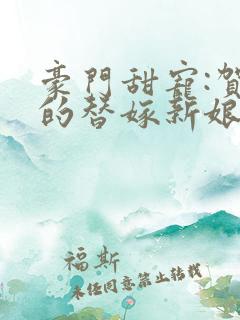 豪門甜寵:賀
的替嫁新娘
福斯
未經同意禁止轉載